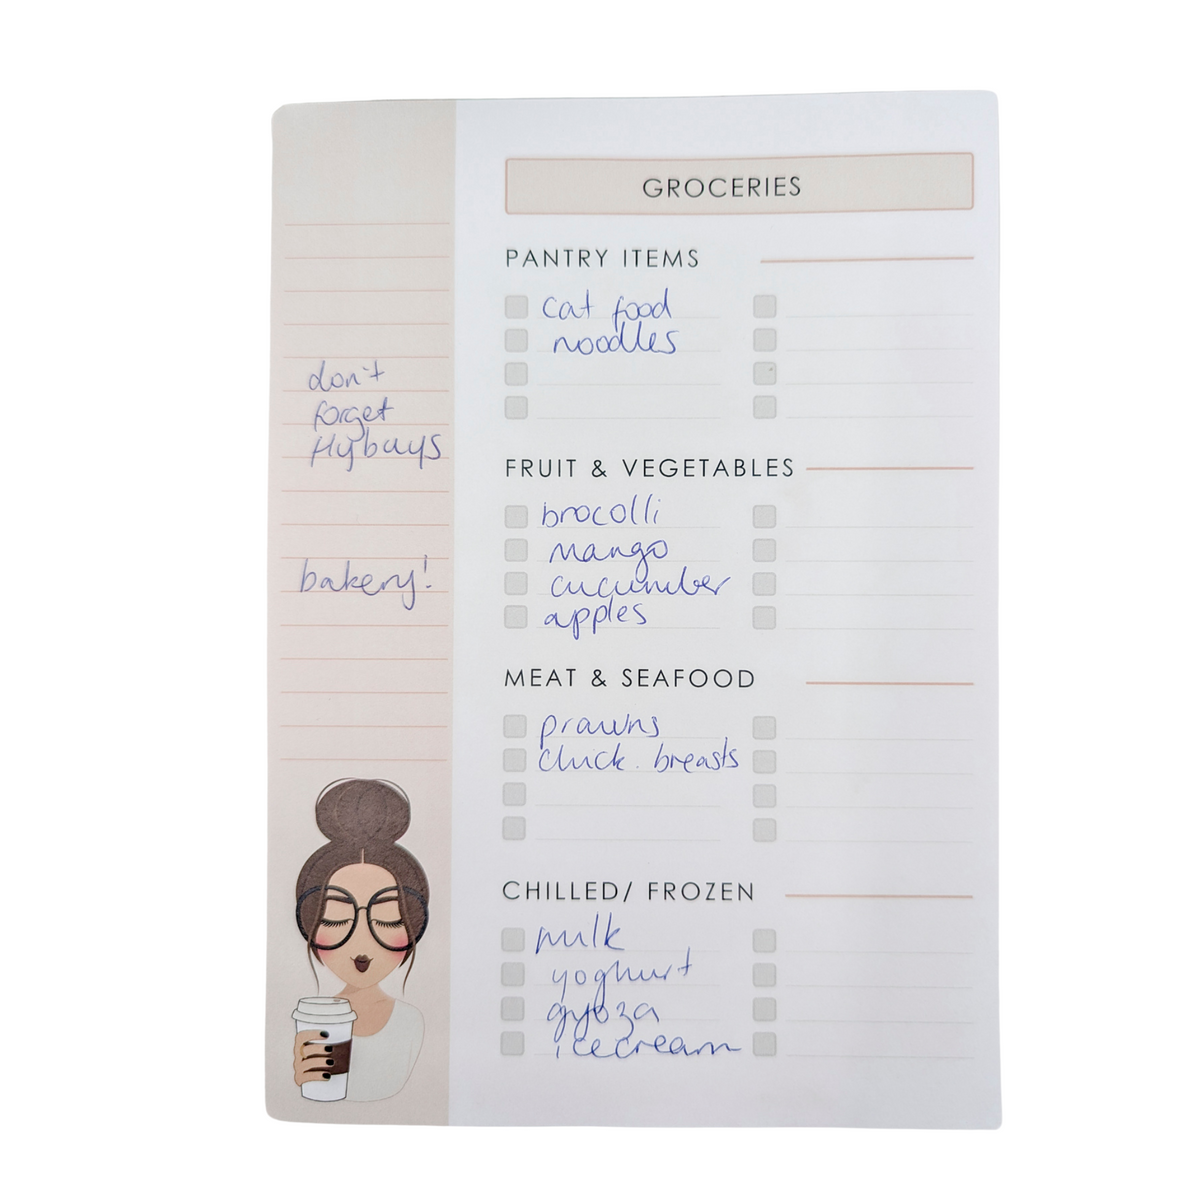 GROCERIES
PANTRY ITEMS
cat food
noodles
don't
forget
flybuys
FRUIT & VEGETABLES
brocolli
mango
cucumber
apples
bakery!
MEAT & SEAFOOD
prawns
chick. breasts
CHILLED/ FROZEN
milk
yoghurt
gyoza
icecream